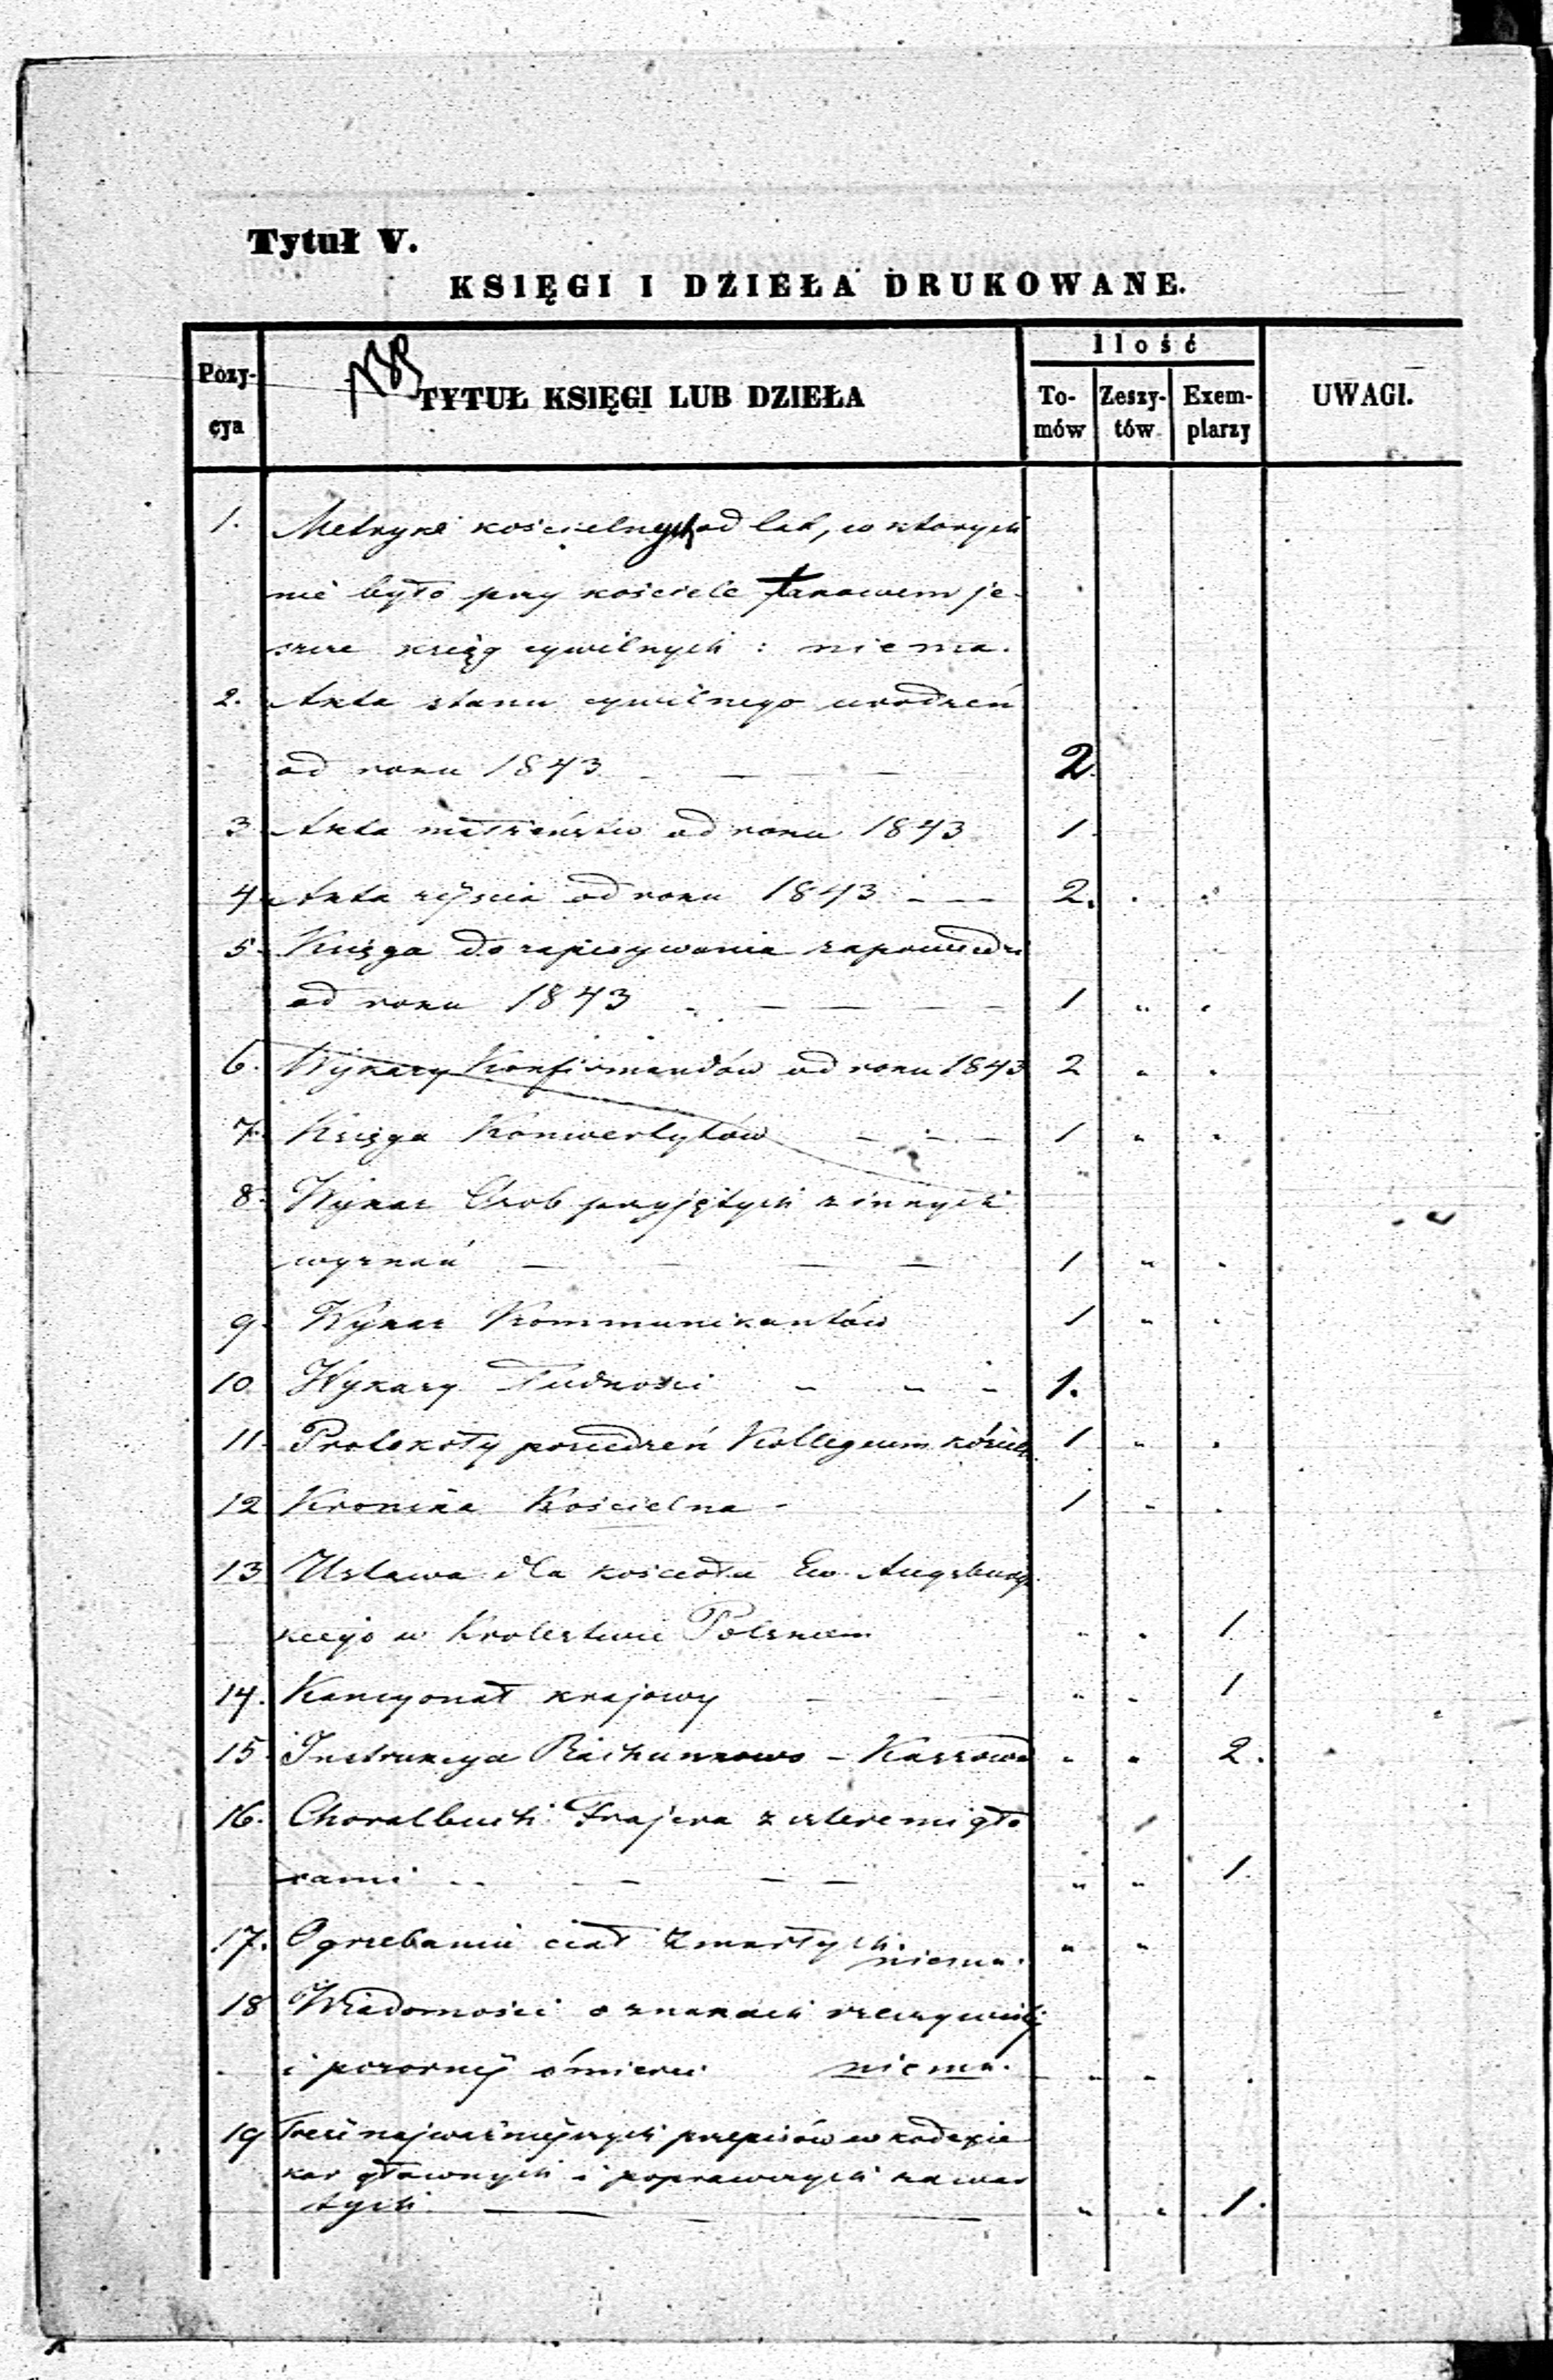 Tytuł V.
KSIĘGI I DZIEŁA DRUKOWANE.
Pozy-
cya
TYTUŁ KSIĘGI LUB DZIEŁA
Ilość
To-
mów
Zeszy-
tów
Exem-
plarzy
UWAGI.
1. Metryki kościelnych od lat, w ktorych
nie było przy kościele je-
szcze ksiąg cywilnych: niema.
2. Akta stanu cywilnego urodzeń
od roku 1843 — — — 2.
3 Akta małżeństw od roku 1843 1.
4 Akta zejścia od roku 1843 - — 2. . "
5. Księga do zapisywania zapowiedzi
od roku 1843 - — — — — 1 " "
6. Wykazy Konfirmandów od roku 1843 2 " "
7. Księga Konwertytów - - - 1 " "
8. Wykaz Osob przyjętych z innych
wyznań — — — — 1 " "
9. Wykaz Kommunikantów 1 " "
10 Wykazy Ludności - - - 1.
11. Protokoły posiedzeń Kollegium kościel. 1 " "
12 Kronika Kościelna - 1 " "
13 Ustawa dla kościoła Ew. Augsburgs-
kiego w Krolestwie Polskiem " " 1
14. Kancyonał krajowy - - - " " 1
15. Instrukcya Rachunkowo - Kassowa " " 2.
16. Choralbuch Frajera z czteremi gło
sami - - - — — " " 1.
17. Ogrzebaniu ciał zmarłych. niema. " "
18 Wiadomości o znakach rzeczywistej
i pozornej śmierci niema. " " "
19 Treść najważniejszych przepisów w kodexie
kar głownych i poprawczych zawar
tych. — — — " " 1.